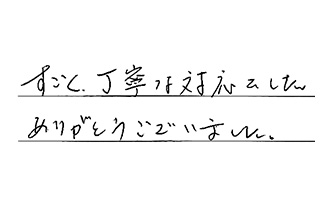 すごく丁寧な対応でした。
ありがとうございました。